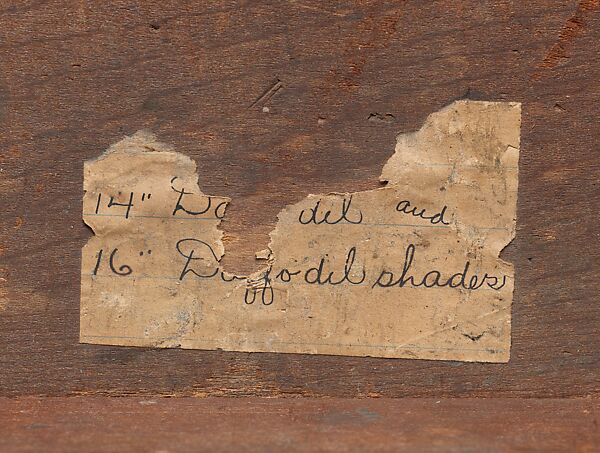 14" Da dil and
16" Daffodil shades